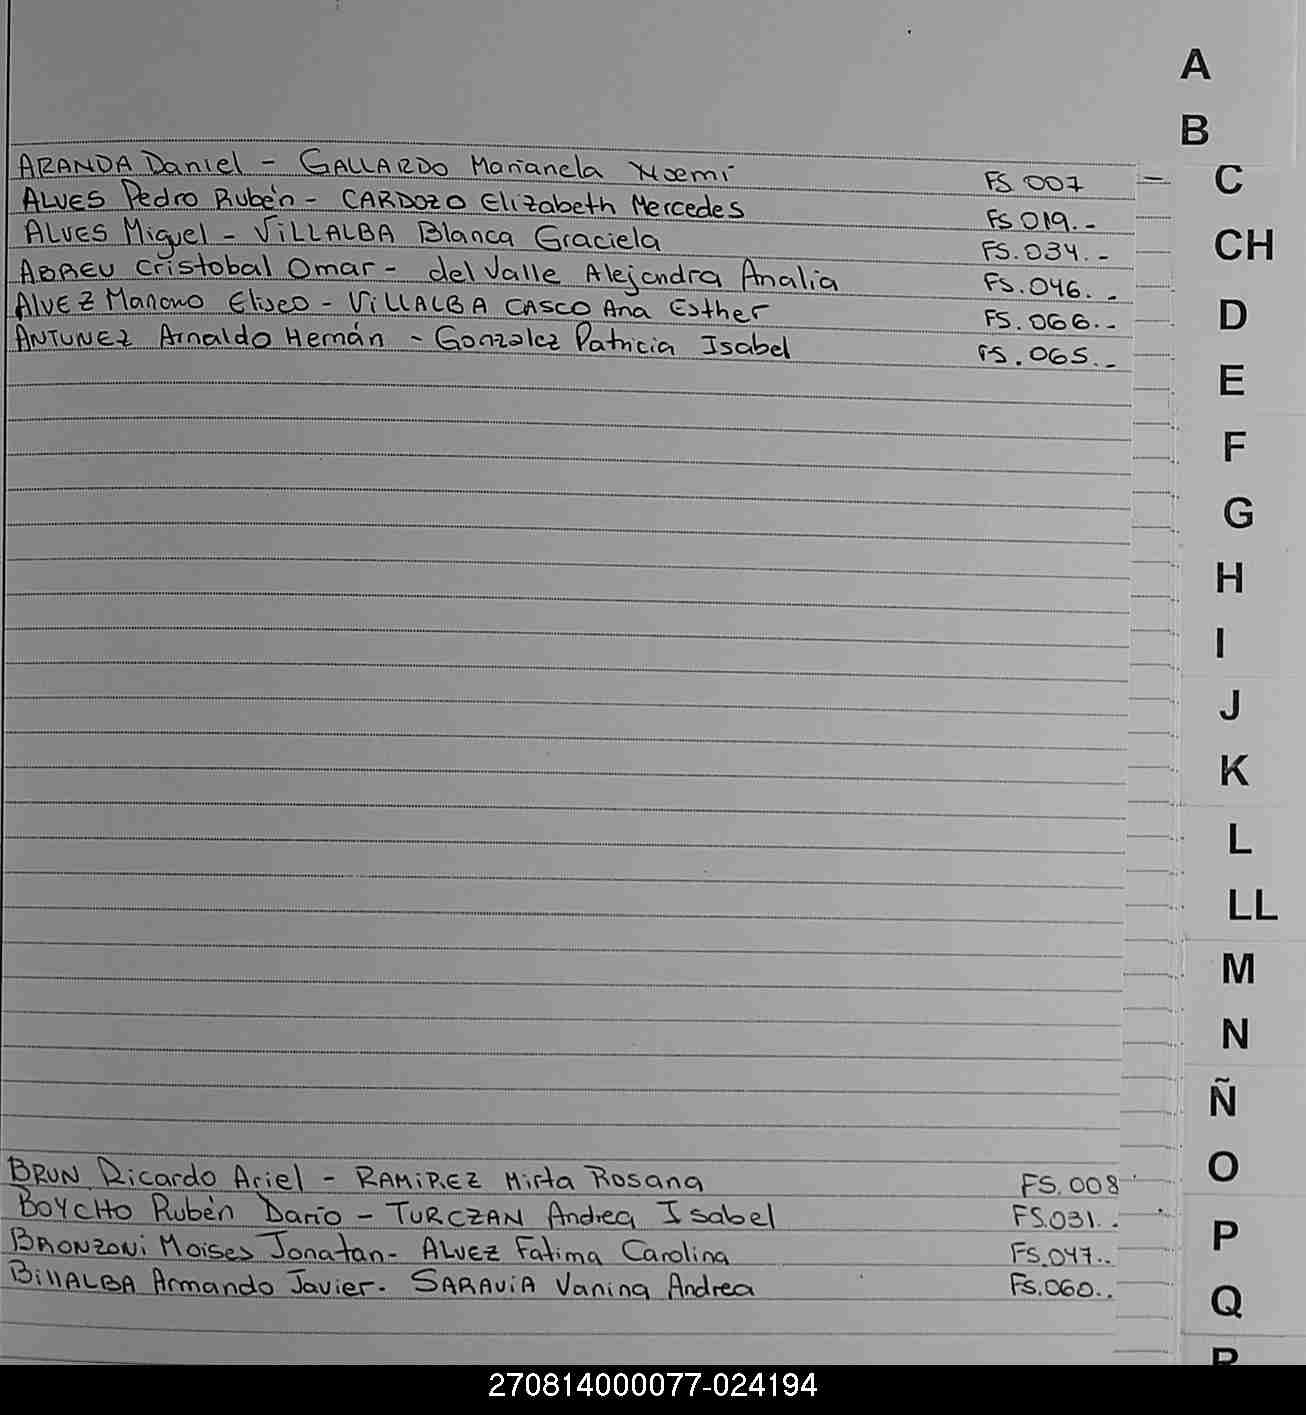 A
B
ARANDA Daniel - GALLARDO Marianela Noemi FS 007
C
ALVES Pedro Rubén - CARDOZO Elizabeth Mercedes FS 019.-
ALVES Miguel - ViLLALBA Blanca Graciela FS.034.-
CH
ABREU Cristobal Omar - del Valle Alejandra Analia FS.046.-
ALVEZ Mariano Eliseo - ViLLALBA CASCO Ana Esther FS.066.-
D
ANTUNEZ Arnaldo Hernán - Gonzalez Patricia Isabel FS.065.-
E
F
G
H
I
J
K
L
LL
M
N
Ñ
O
BRUN Ricardo Ariel - RAMiREZ Mirta Rosana FS.008
BOYCHO Rubén Darío - TURCZAN Andrea Isabel FS.031..
P
BRONZONi Moises Jonatan - ALVEZ Fatima Carolina FS.047..
BillALBA Armando Javier - SARAViA Vanina Andrea FS.060..
Q
R
270814000077-024194